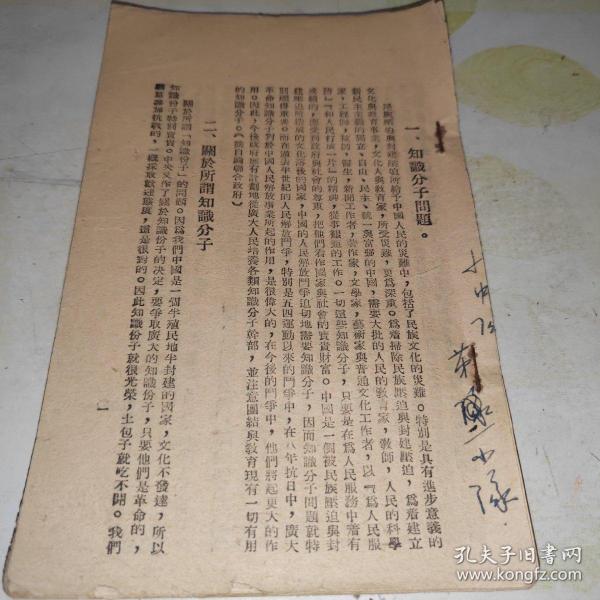 一、知識分子問題。
民族壓迫與封建壓迫所給予中國人民的災難中，包括了民族文化的災難。特別是具有進步意義的
文化與教育事業，文化人與教育家，所受災難，更爲深重。爲着掃除民族壓迫與封建壓迫，爲着建立
新民主主義的獨立、自由、民主、統一與富强的中國，需要大批的人民的教育家，教師，人民的科學
家，工程師，技師，醫生，新聞工作者，著作家，文學家，藝術家與普通文化工作者，以『爲人民服
務』『和人民打成一片』的精神，從事艱苦的工作。一切這些知識分子，只要是在爲人民服務中著有
成績的，應受到政府與社會的尊重，把他們看作國家與社會的寶貴財富。中國是一個被民族壓迫與封
建壓迫所造成的文化落後的國家，中國的人民解放鬥爭迫切地需要知識分子，因而知識分子問題就特
別顯得重要。而在過去半世紀的人民解放鬥爭，特別是五四運動以來的鬥爭中，在八年抗日中，廣大
革命知識分子對於中國人民解放事業所起的作用，是很偉大的，在今後的鬥爭中，他們將起更大的作
用。因此，今後政府應有計劃地從廣大人民培養各類知識分子幹部，並注意團結與教育現有一切有用
的知識分子。（摘自論聯合政府）
二、關於所謂知識分子
關於所謂『知識份子』的問題。因爲我們中國是一個半殖民地半封建的國家，文化不發達，所以
知識份子特別寶貴。中央又作了關於知識份子的決定，要爭取廣大的知識份子，只要他們是革命的，
願意參加抗戰的，一概採取歡迎態度，這是很對的。因此知識份子就很光榮，土包子就吃不開。我們
小隊
孔夫子旧書网
www.kongfz.com